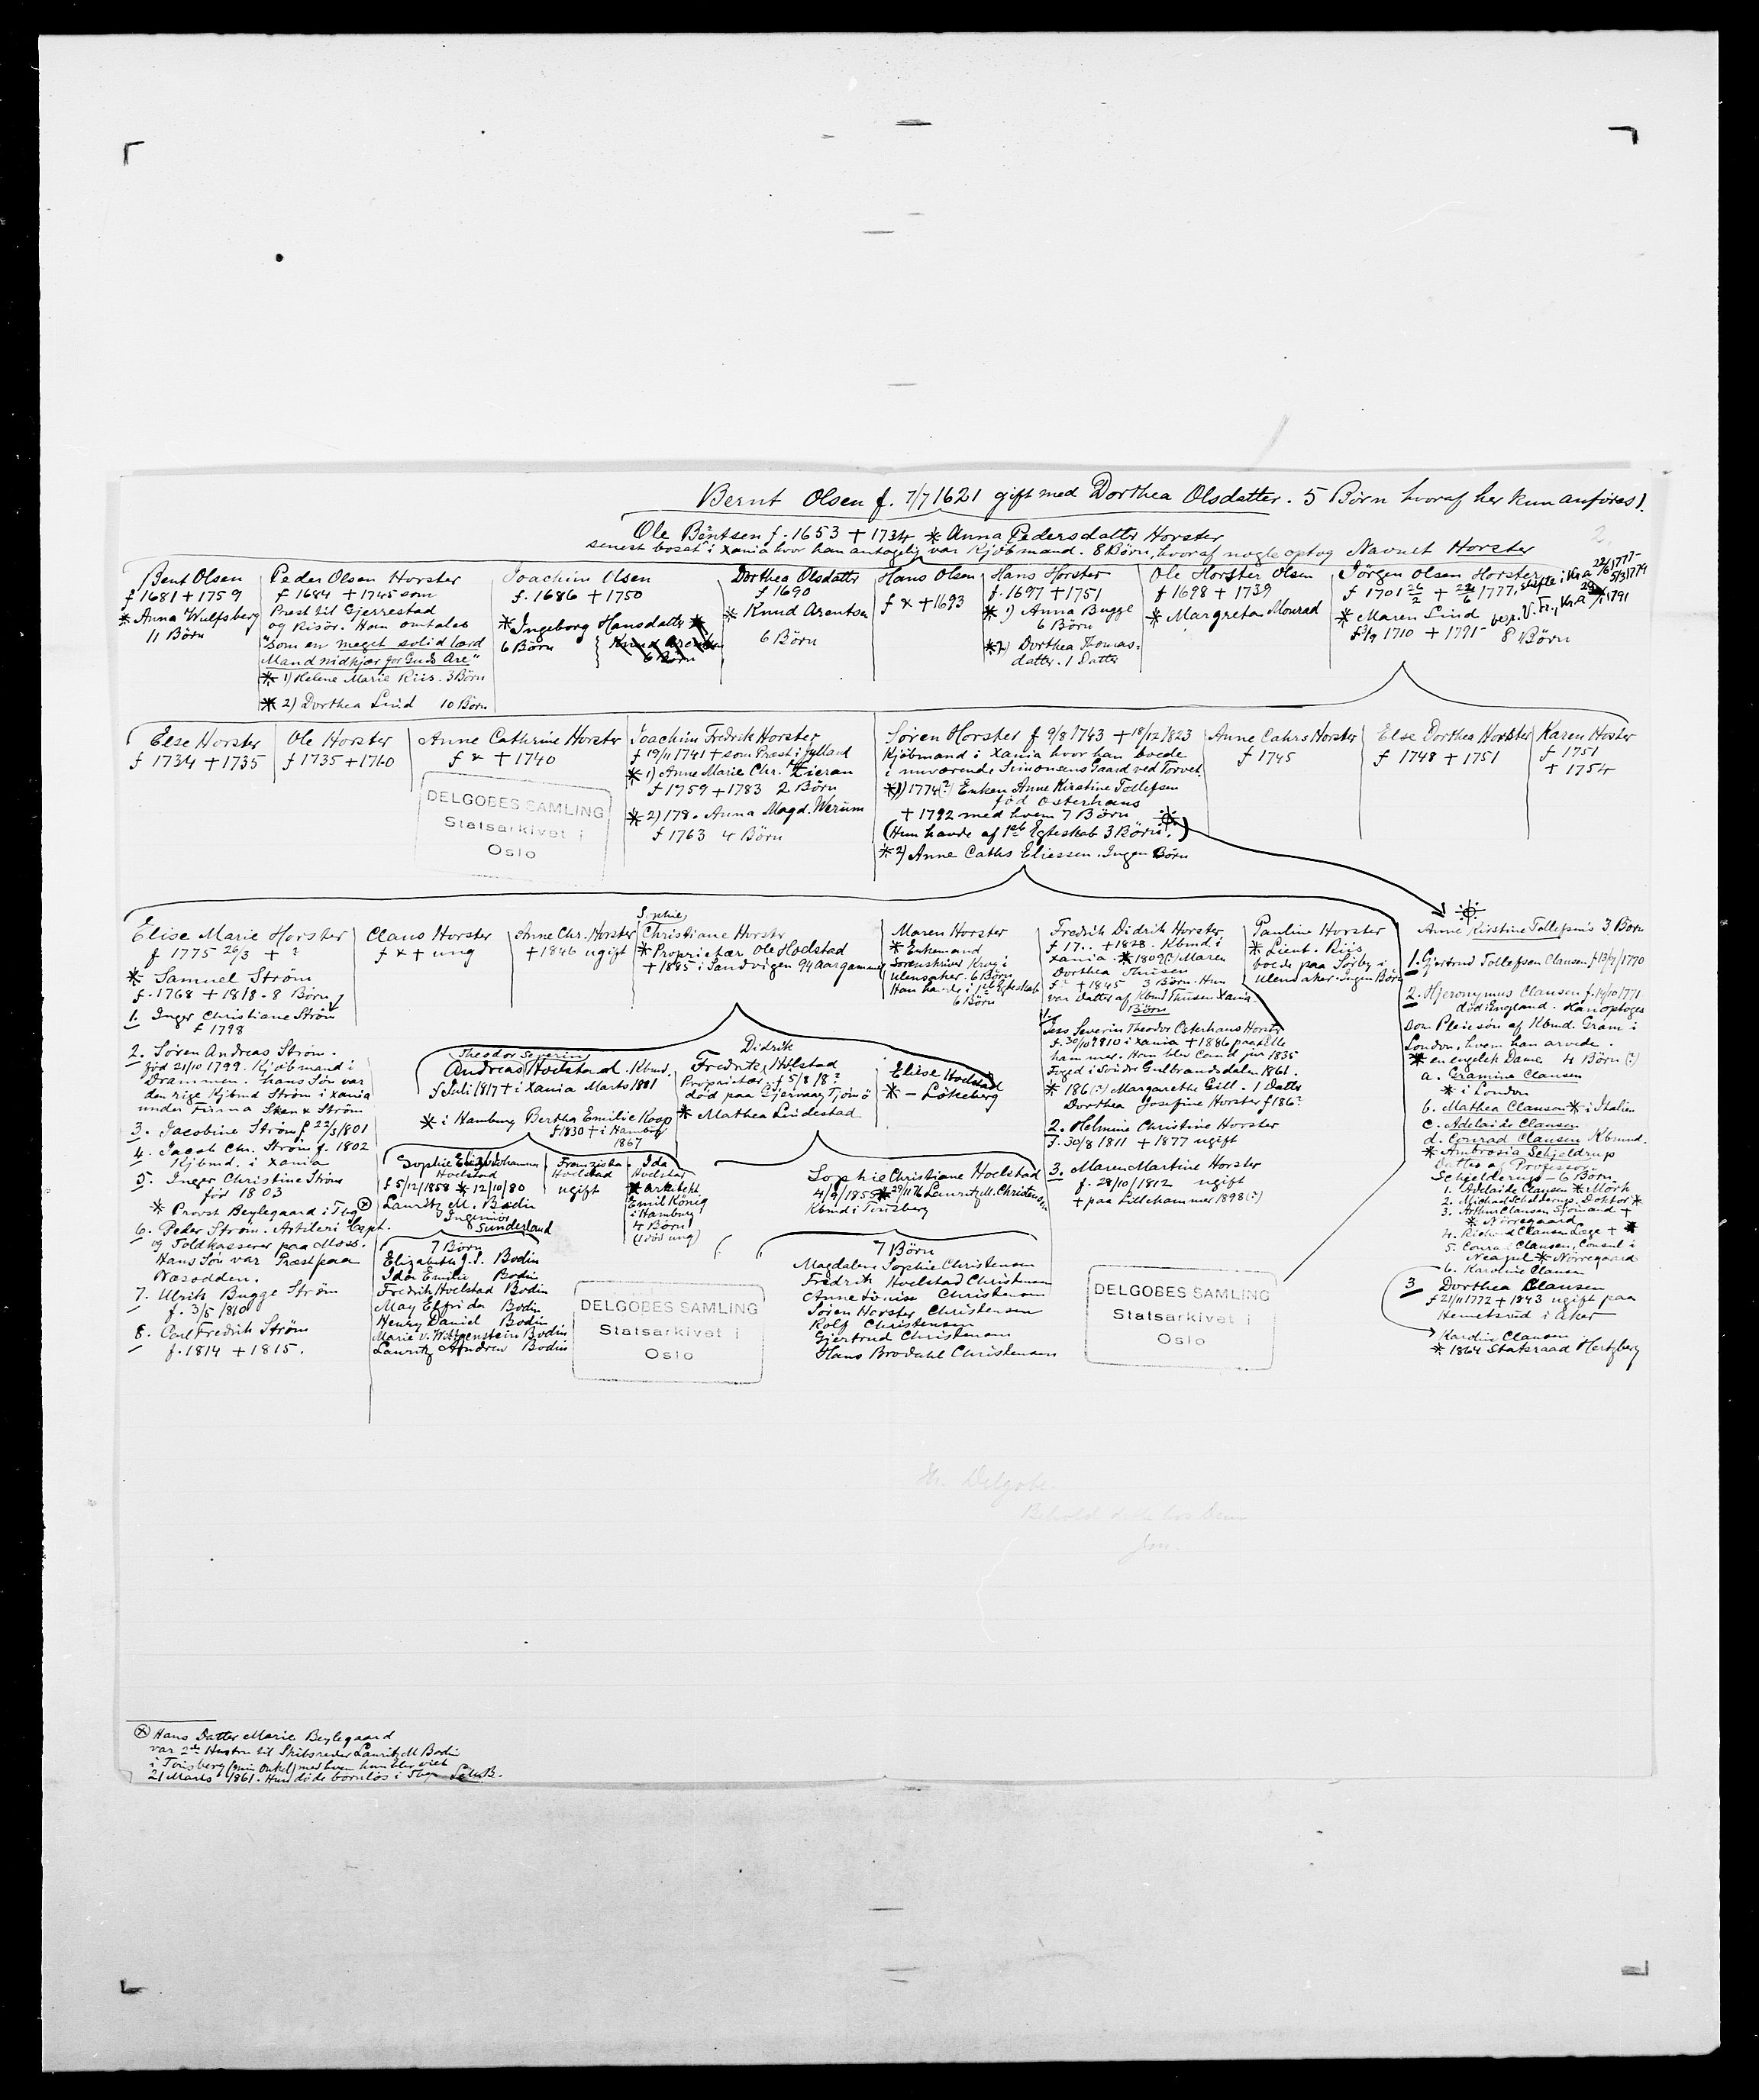 Bernt Olsen f. 7/7 1621 gift med Dorthea Olsdatter. 5 Börn hvoraf her kun anföres 1.
Ole Bentsen f. 1653 + 1734 * Anna Pedersdatter Horster
senest bosat i Xania hvor han antagelig var Kjöbmand. 8 Börn, hvoraf nogle optog Navnet Horster
2.
Bent Olsen
f 1681 + 1759
* Anna Wulfsberg
11 Börn
Peder Olsen Horster
f 1684 + 1745 som
Prest til Gjerrestad
og Risör. Han omtales
"som en meget solid lærd
Mand nidkjær for Guds Ære"
* 1) Helene Marie Riis. 3 Börn
* 2) Dorthea Lind 10 Börn
Joachim Olsen
f. 1686 + 1750
* Ingeborg Hansdatter *
6 Börn
Knud Arentsen
6 Börn
Dorthea Olsdatter
f 1690
* Knud Arentsen
6 Börn
Hans Olsen
f & + 1693
Hans Horster
f. 1697 + 1751
* 1) Anna Bugge
6 Börn
* 2) Dorthea Thomas-
datter. 1 Datter
Ole Horster Olsen
f 1698 + 1739
* Margreta Monrad
Jörgen Olsen Horster
f 1701 26/2 + 22/6 1777, skifte i Kr.a
* Maren Lind
1710 + 1791
8 Börn
Else Horster
f 1734 + 1735
Ole Horster
f 1735 + 1760
Anne Cathrine Horster
f & + 1740
Joachim Fredrik Horster
f 19/11 1741 + som Præst i Jylland
* 1) Anne Marie Chr. Zieran
f 1759 + 1783 2 Börn
* 2) 178. Anna Magd. Werum
f 1763 4 Börn
Sören Horster f 9/8 1743 + 18/12 1823
Kjöbmand i Xania hvor han boede
i nuværende Simonsens Gaard ved Torvet.
* 1) 1774(?) Enken Anne Kirstine Tollefsen
född Osterhans
+ 1792 med hvem 7 Börn
(Hun havde af 1ste Egteskab 3 Börn.)
* 2) Anne Caths Eliessen. Ingen Börn
Anne Cahrs Horster
f 1745
Else Dorthea Horster
f 1748 + 1751
Karen Hoster
f 1751
+ 1754
DELGOBES SAMLING
Statsarkivet i
Oslo
Elise Marie Horster
f 1775 26/3 + ?
* Samuel Ström
f. 1768 + 1818. 8 Börn
1. Inger Christiane Ström
f 1798
2. Sören Andreas Ström.
född 21/10 1799. Kjöbmand i
Drammen. hans Sön var
den rige Kjbmd Ström i Xania
under Firma Sken & Ström
3. Jacobine Ström f 22/5 1801
4. Jacob Chr. Ström f. 1802
Kjbmd. i Xania
5. Inger Christine Ström
för 1803
* Provst Beylegaard i Tbg ⊗
6. Peder Ström. Artileri Capt.
og Toldkasserer paa Moss.
Hans Sön var Præst paa
Næsodden.
7. Ulrik Bugge Ström
f. 3/5 1810
8. Carl Fredrik Ström
f. 1814 + 1815.
Claus Horster
f & + ung
Anne Chr. Horster
+ 1846 ugift
Sophie
Christiane Horster
* Proprietær Ole Hodstad
+ 1885 i Sandvigen 94 Aar gammel
Maren Horster
* Enkemand
Sorenskriver Krag i
Ulensaker. 6 Börn
Han havde i 1ste Egteskab
6 Börn
Fredrik Didrik Horster
f 17.. + 1828. Kbmd. i
Xania. * 1809(?) Maren
Dorthea Thuisen
f ? + 1845 3 Börn. Hun
var datter af Kbmd Thuisen Xania.
Börn
1. Jess Severin Theodor Osterhaus Horster
f. 30/10 1810 i Xania + 1886 paa Lille
hammer. Han blev Cand jur 1835
Foged i Söndre Gulbrandsdalen 1861.
* 186(?) Margarethe Gill. 1 Datter
Dorthea Josefine Horster f 186?
2. Helmine Christine Horster
f. 30/8 1811 + 1877 ugift
3. Maren Martine Horster
f. 28/10/1812 ugift
+ paa Lillehammer 1898(?)
Pauline Horster
* Lieut. Riis
boede paa Sörby i
Ulensaker. Ingen Börn
Anne Kirstine Tollefsens 3 Börn
1. Gjertrud Tollefsen Clausen f 13/2/1770
2. Hjeronymus Clausen f. 14/10 1771
död i England. Han optoges
som Pleiesön af Kbmd. Gram i
London, hvem han arvede.
* en engelsk Dame 4 Börn (?)
a. Gramine Clausen
* i London
b. Mathea Clausen * i Italien
c. Adelaide Clausen
d. Conrad Clausen Kbmd.
* Ambrosia Schjeldrup
Datter af Professor
Schjelderup - 6 Börn
1. Adelaide Clausen * Mörk
2. Michael Schelderup. Doktor *
3. Arthur Clausen Sjömand +
* Nörregaard
4. Richard Clausen Læge + *
5. Conrad Clausen, Consul i
Neapel * Nörregaard
6. Karoline Clausen
3 Dorthea Clausen
f 21/11 1772 + 1843 ugift paa
Hemetsrud i Aker
Karoline Clausen
* 1864 Statsraad Hertzberg
Theodor Severin
Andreas Hoelstad. Kbmd.
f Juli 1817 + i Xania Marts 1881
* i Hamburg Bertha Emilie Koop
f 1830 + i Hamburg
1867
Didrik
Fredrik Holstad
Proprietær f 5/8 18 ?
död paa Gjervaag Tjömö
* Mathea Lindestad
Eliese Hoelstad
* - Lökeberg
Sophie Elisab Johanne
Hoelstad
f 5/12/1858 * 12/10/80
Lauritz M. Bodin
Ingeniör
Sunderland
7 Börn
Elizabeth J. S. Bodin
Ida Emilie Bodin
Fredrik Hoelstad Bodin
May Elfrida Bodin
Henry Daniel Bodin
Marie v. Wittgenstein Bodin
Lauritz Andrew Bodin
Franziska
Hoelstad
ugift
Ida
Hoelstad
* Arkitekt
Emil König
i Hamburg
4 Börn
(1 död ung)
Sophie Christiane Hoelstad
4/9/1855 * 29/11 76 Lauritz M. Christensen
Kbmd i Tönsberg
7 Börn
Magdalene Sophie Christensen
Fredrik Hoelstad Christensen
Anne Louise Christensen
Sören Horster Christensen
Rolf Christensen
Gjertrud Christensen
Hans Brodahl Christensen
DELGOBES SAMLING
Statsarkivet i
Oslo
DELGOBES SAMLING
Statsarkivet i
Oslo
Hr. Delgobe.
Behold dette hos Dem
⊗ Hans Datter Marie Beylegaard
var 2den Hustru til Skibsreder Lauritz M Bodin
i Tönsberg (min Onkel) med hvem hun blev viet
21 Marts 1861. Hun döde barnlös i Tbg.